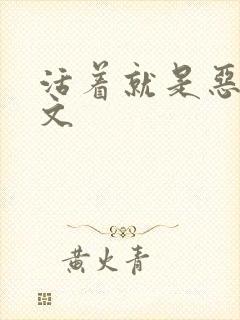 活着就是恶
文
黄火青